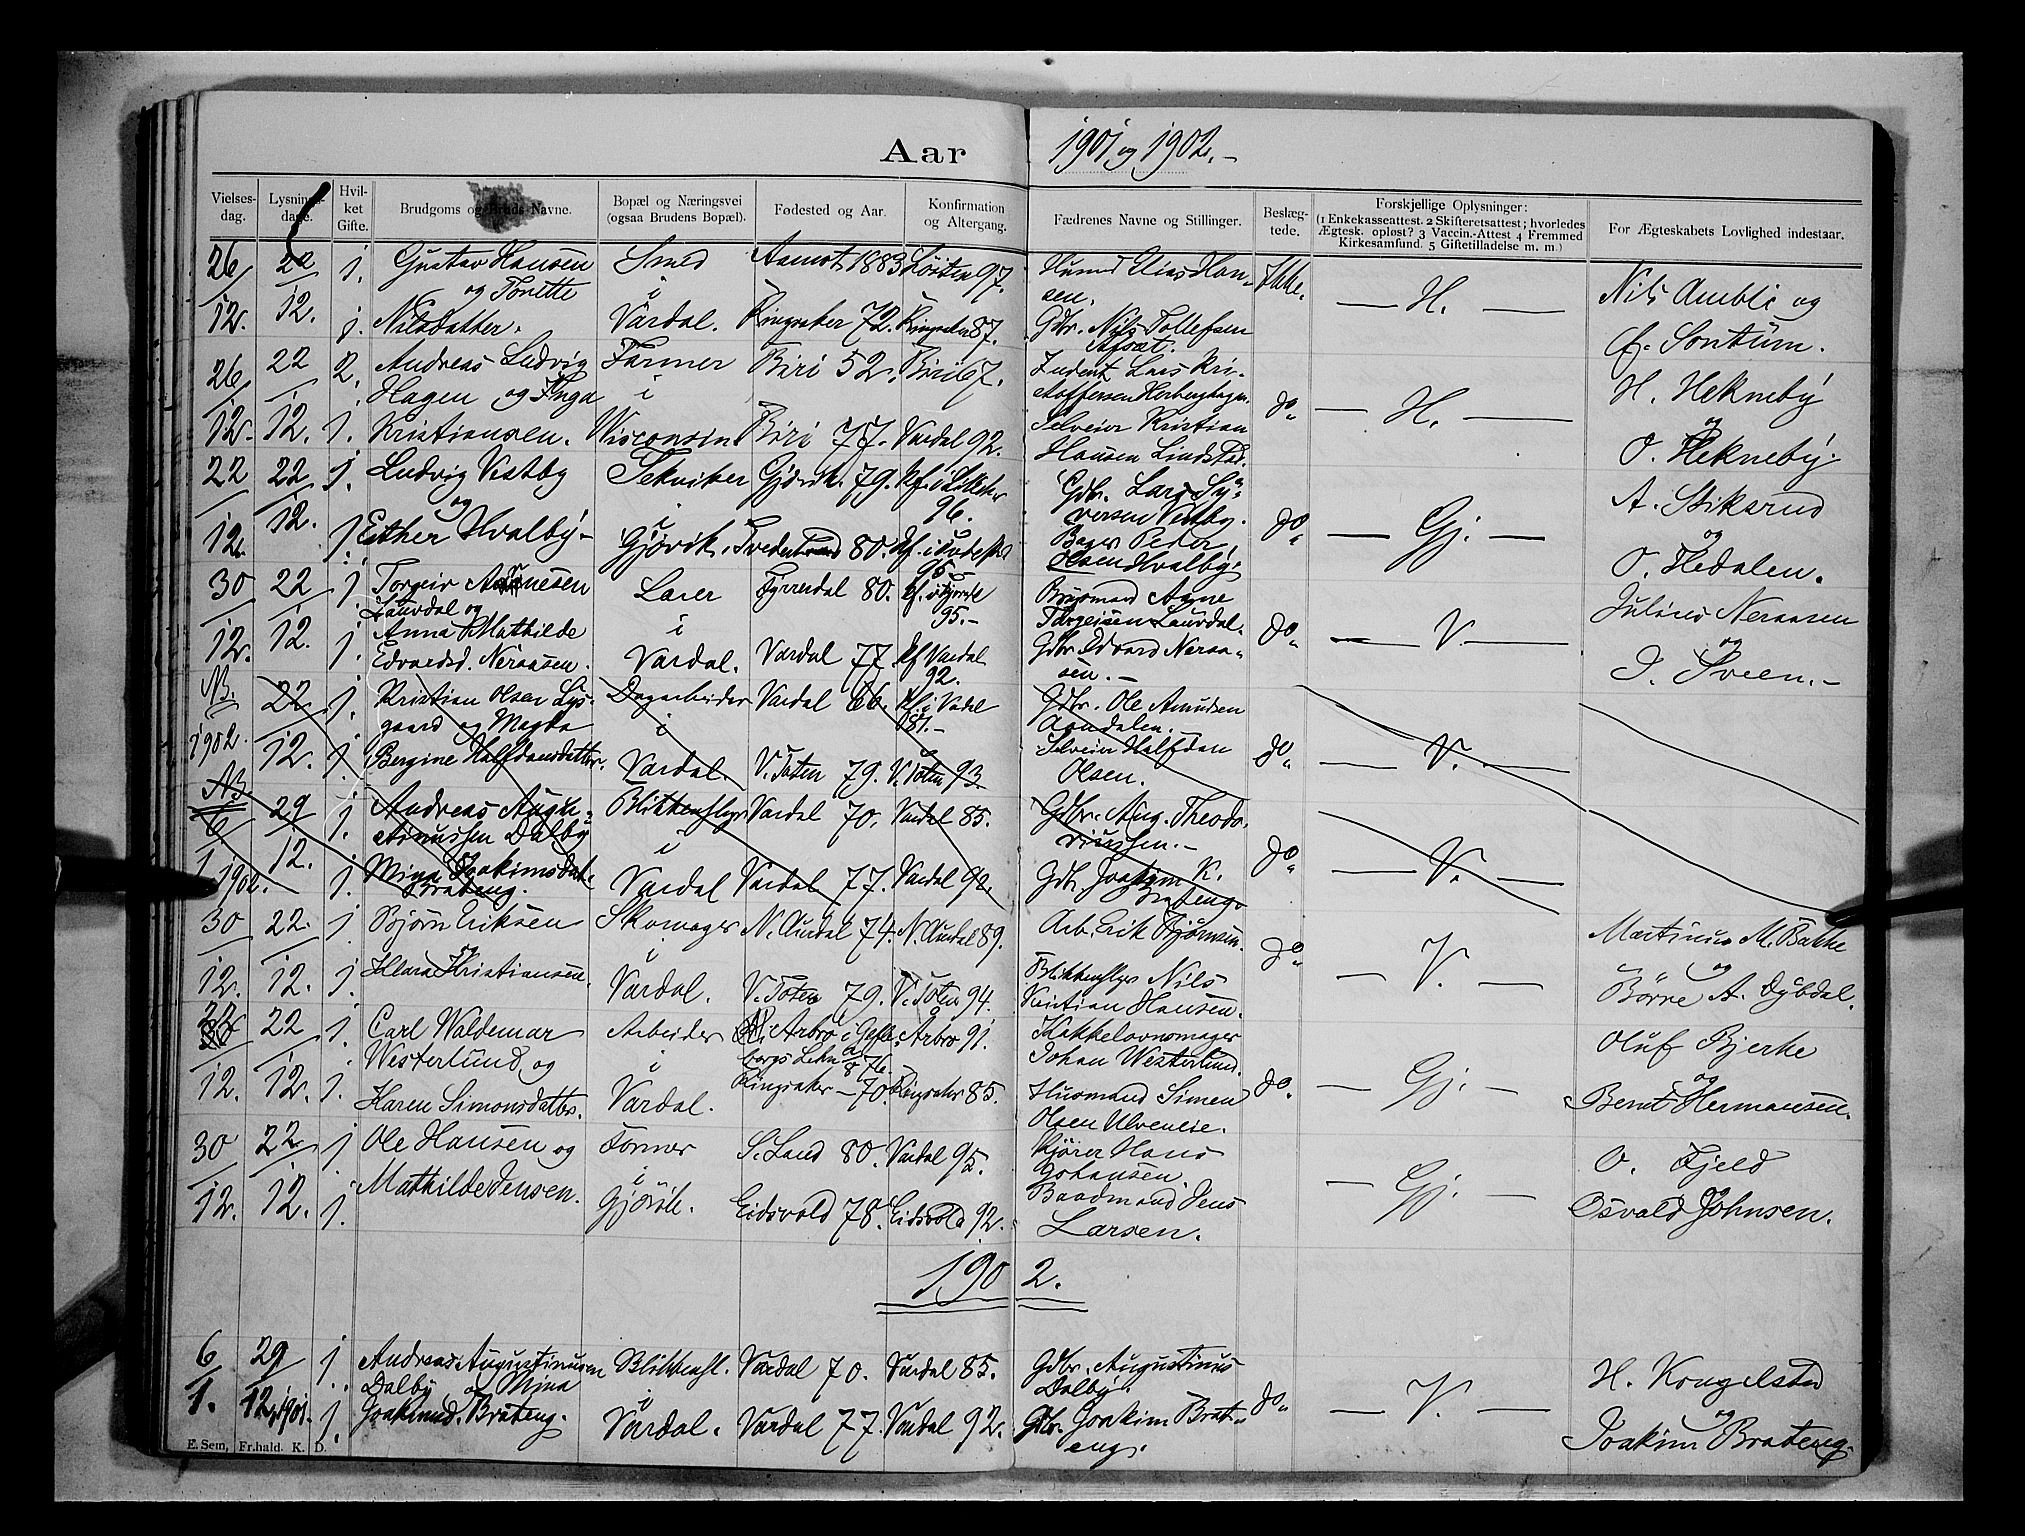 Aar 1901 og 1902.
Vielses-
dag.
Lysnings-
dage.
Hvil-
ket
Gifte.
Brudgoms og Bruds Navne.
Bopæl og Næringsvei
(ogsaa Brudens Bopæl).
Fødested og Aar.
Konfirmation
og Altergang.
Fædrenes Navne og Stillinger.
Beslæg-
tede.
Forskjellige Oplysninger:
(1 Enkekasseattest. 2 Skifteretsattest; hvorledes
Ægtesk. opløst? 3 Vaccin.-Attest 4 Fremmed
Kirkesamfund. 5 Giftetilladelse m. m.)
For Ægteskabets Lovlighed indestaar.
26/12. 22/12. 1. Gustav Hansen Smed Aamot 1883 Løiten 97. Ikke. — H. — Nils Amble og
og Tonette i sen.
1. Nilsdatter. Vardal. Ringsaker 72. Ringsaker 87. Gdbr. Nils Tollefsen
Sontum.
26/12. 22/12. 2. Andreas Ludvig Farmer Biri 52. Biri 67. Lars Kri-
Hagen og Inga i do — H. — H. Hekneby
1. Kristiansen. Wisconsin Biri 77. Vardal 92. Selveier Kristian og
Hansen Lindstad. O. Hekneby.
22/12. 22/12. 1. Ludvig Vestby Tekniker Gjøvik. 79. 96. Gdbr. Lars Sy-
og i versen Vestby. do — Gj. — A. Stiksrud
1. Esther Hvalby Gjøvik. Tvedestrand 80. 95 Bager Peder og
Olsen Hvalby. O. Hedalen.
30/12. 22/12. 1. Torgeir Aanesen Lærer Fyrresdal 80. 95.- Aane
Laurdal og Torgeisen Laurdal. Julius Neraasen
1. Anna Mathilde i do — V. — og
Edvardsd. Neraasen. Vardal. Vardal 77. kf Vardal 92. Gdbr. Edvard Neraa-
sen. - Sveen. -
NB. 1902. 22/12. 1. Kristian Olsen Lys- Dagarbeider Vardal 66. kf. i Vardal 81.- Gdbr. Ole Amundsen
gaard og Magda i
1. Bergine Halfdansdatter. Vardal. V. Toten 79. V. Toten 93. Selveier Halfdan
Olsen. do — V. —
NB. 6/1 1902. 29/12. 1. Andreas Augu- Blikkenslager Vardal 70. Vardal 85. Gdbr. Aug. Theodo-
stinussen Dalby i
1. Mina Joakimsdat. Vardal Vardal 77. Vardal 92. Gdbr. Joakim K. do — V. —
Brateng. Brateng.
30/12. 22/12. 1. Bjørn Eriksen Skomager N. Aurdal 74. N. Aurdal 89. Arb. Erik Bjørnsen. do — V. — Martinus M. Bakke
og i og
1. Klara Kristiansen. Vardal. V. Toten 79. V. Toten 94. Blikkenslager Nils
Kristian Hansen. Børre A. Dybdal.
12. 22/12. 1. Carl Waldemar Arbeider Arbro i Gefle- Arbro 91. Kakkelovnsmager Oluf Bjerke
Westerlund og i borgs Lehn 76. Johan Westerlund. og
1. Karen Simonsdatter. Vardal. Ringsaker -70. Ringsaker 85. Husmand Simen do. — Gj. — Bernt Hermansen.
Olsen Ulveneie.
30/12. 22/12. 1. Ole Hansen og Former S. Land 80. Vardal 95. Kjører Hans O. Fjeld
i Johansen. — Gj. —
1. Mathilde Jensen. Gjøvik. Eidsvold 78. Eidsvold 92. Baadmand Jens Osvald Johnsen.
Larsen.
1902.
6/1. 29/12. 1901. 1. Andreas Augustinussen Blikkensl. Vardal 70. Vardal 85. Gdbr. Augustinus H. Kongelstad
Dalby og Mina i Dalby. do — V. — og
1. Joakimsd. Brateng. Vardal. Vardal 77. Vardal 92. Gdbr. Joakim Brat-
eng. Joakim Brateng.
E. Sem, Fr.hald. K. D.